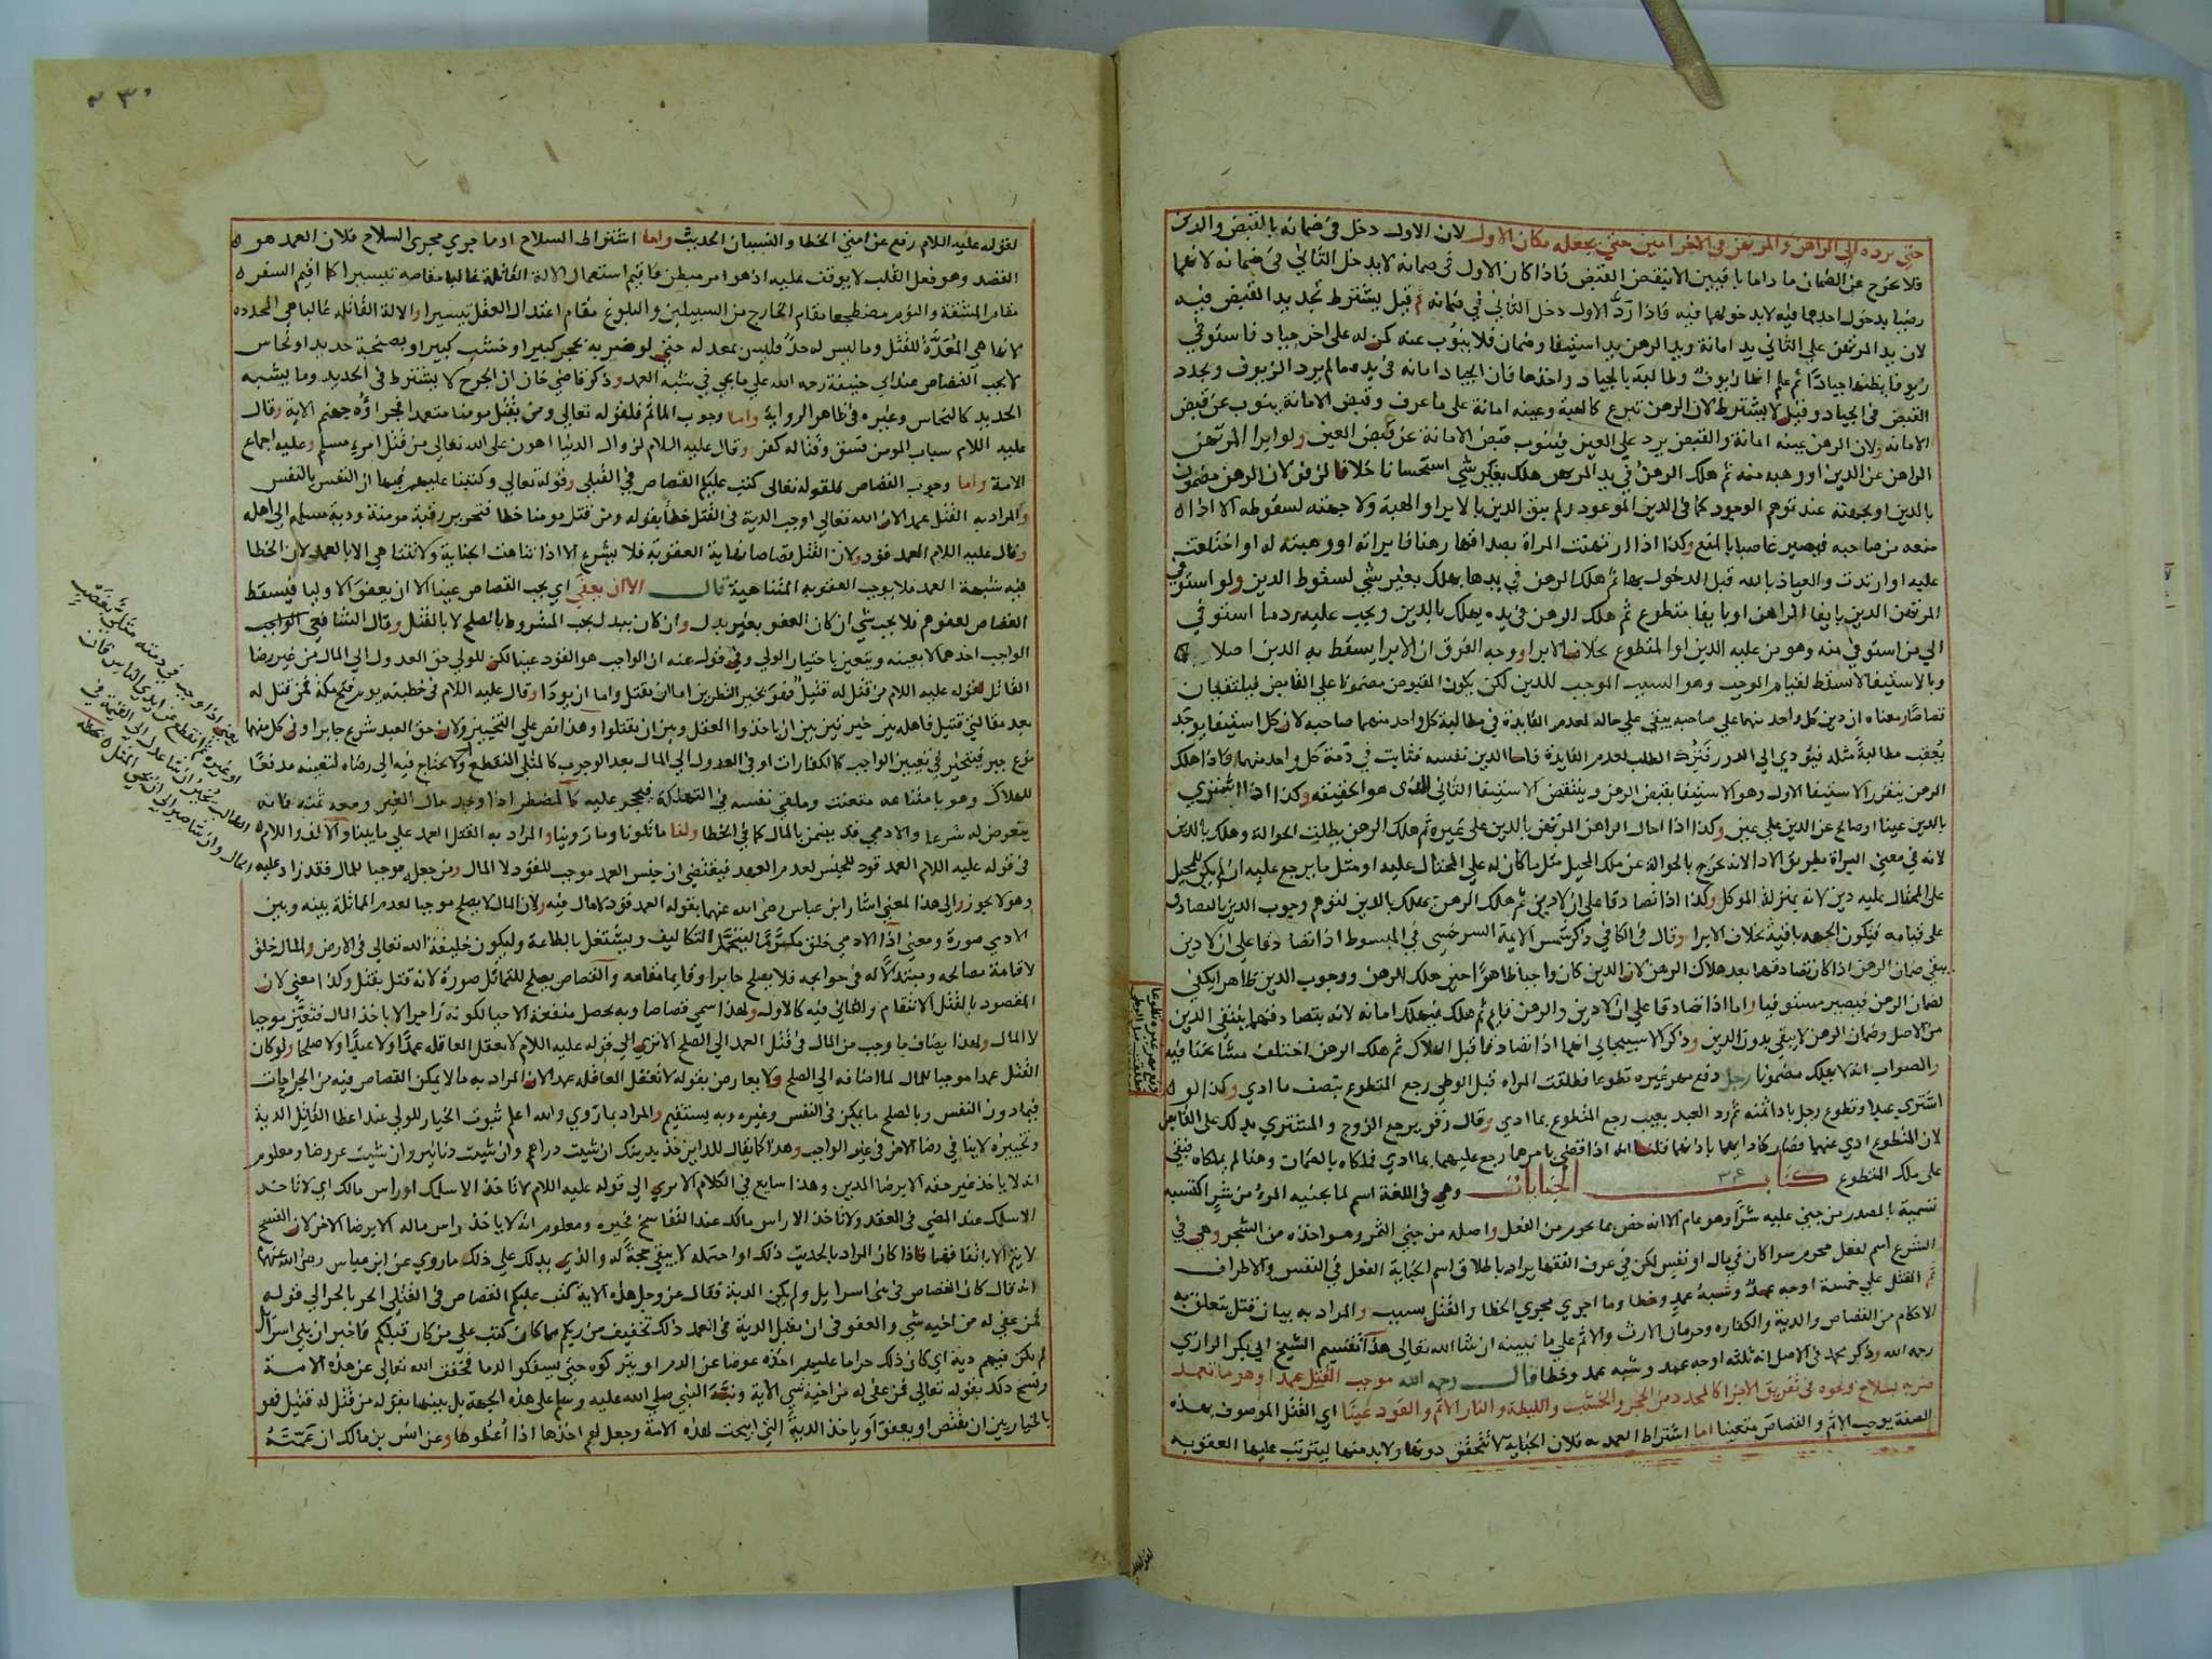 حتى يرده الى الراهن والمرتهن في الاخر امين حتى يجعله مكان الاول لان الاول دخل في ضمانه بالقبض والدين
فلا يخرج عن الضمان ما داما باقيين الا بنقض القبض فاذا كان الاول في ضمانه لا يدخل الثاني في ضمانه لانهما
رضيا بدخول احدهما فيه لا بدخولهما فيه فاذا رد الاول دخل الثاني في ضمانه ثم قيل يشترط تجديد القبض فيه
لان يد المرتهن على الثاني يد امانة ويد الرهن يد استيفا وضمان فلا ينوب عنه كمن له على اخر جياد فاستوفى
زيوفا يظنها جيادا ثم علم انها زيوف وطالبه بالجياد واخذها فان الجياد امانه في يده ما لم يرد الزيوف ويجدد
القبض في الجياد وقيل لا يشترط لان الرهن تبرع كالهبة وعينه امانة على ما عرف وقبض الامانة ينوب عن قبض
الامانه ولان الرهن عينه امانة والقبض يرد على العين فينوب قبض الامانة عن قبض العين ولو ابرا المرتهن
الراهن عن الدين او وهبه منه ثم هلك الرهن في يد المرتهن هلك بغير شي استحسانا خلافا لزفر لان الرهن مضمون
بالدين او بجهته عند توهم الوجود كما في الدين الموعود ولم يبق الدين بالابرا والهبة ولا جهته لسقوطه الا اذا
منعه من صاحبه فيصير غاصبا بالمنع وكذا اذا ارتهنت المراة بصداقها رهنا فابراته او وهبته له او اختلعت
عليه او ارتدت والعياذ بالله قبل الدخول بها ثم هلك الرهن في يدها يهلك بغير شي لسقوط الدين ولو استوفى
المرتهن الدين بايفا الراهن او بايفا متطوع ثم هلك الرهن في يده يهلك بالدين ويجب عليه رد ما استوفي
الي من استوفي منه وهو من عليه الدين او المتطوع بخلاف الابرا ووجه الفرق ان الابرا يسقط به الدين اصلا
وبالاستيفا لا يسقط لقيام الموجب وهو السبب الموجب للدين لكن يكون المقبوض مضمونا على القابض فيلتقيان
قصاصا ومعناه ان دين كل واحد منهما على صاحبه يبقي على حاله لعدم الفايدة في مطالبة كل واحد منهما صاحبه لان كل استيفا يوجد
يعقب مطالبة مثله فيؤدي الي الدور فتترك الطلب لعدم الفايدة فاما الدين نفسه فثابت في ذمة كل واحد منهما فاذا هلك
الرهن يتقرر الاستيفا الاول وهو الاستيفا بقبض الرهن وينتقض الاستيفا الثاني الذي هو الحقيقه وكذا اذا اشتري
بالدين عينا او صالح عن الدين على عين وكذا اذا احال الراهن المرتهن بالدين على غيره ثم هلك الرهن بطلت الحوالة وهلك بالدين
لانه في معني البراة بطريق الادا لانه يخرج بالحوالة عن ملك المحيل مثل ما كان له على المحتال عليه او مثل ما يرجع عليه ان لم يكن للمحيل
على المحتال عليه دين لانه بمنزلة الموكل وكذا اذا تصادقا على ان لا دين ثم هلك الرهن يهلك بالدين لتوهم وجوب الدين بالتصادق
على قيامه فتكون الجهه باقية بخلاف الابرا وقال في الكافي ذكر شمس الايمة السرخسي في المبسوط اذا تصادقا على ان لا دين
يبقى ضمان الرهن اذا كان تصادقهما بعد هلاك الرهن لان الدين كان واجبا ظاهرا حين هلك الرهن ووجوب الدين ظاهرا يكفي
لضمان الرهن فيصير مستوفيا واما اذا تصادقا على ان لا دين والرهن قايم ثم هلك يهلك امانه لانه بتصادقهما ينتفي الدين
من الاصل وضمان الرهن لا يبقي بدون الدين وذكر الاسبيجابي انهما اذا تصادقا قبل الهلاك ثم هلك الرهن اختلف مشايخنا فيه
والصواب انه لا يهلك مضمونا رجل دفع مهر غيره تطوعا فطلقت المراه قبل الوطي رجع المتطوع بنصف ما ادي وكذا لو
اشتري عبدا وتطوع رجل باداء ثمنه ثم رد العبد بعيب رجع المتطوع بما ادي وقال زفر يرجع الزوج والمشتري بذلك على القابض
لان المتطوع ادي عنهما فصار كادايهما باذنهما قلنا انه اذا قضى بامرهما رجع عليهما بما ادي فملكاه بالضمان وهنا لم يملكاه فيبقي
على ملك المتطوع كتاب الجنايات وهي في اللغة اسم لما يجنيه المرء من شر اكتسبه
تسمية بالمصدر من جني عليه شرا وهو عام الا انه خص بما يحرم من الفعل واصله من جني الثمر وهو اخذه من الشجر وهي في
الشرع اسم لفعل محرم سوا كان في مال او نفس لكن في عرف الفقها يراد باطلاق اسم الجناية الفعل في النفس والاطراف
ثم القتل على خمسة اوجه عمد وشبه عمد وخطا وما اجري مجري الخطا والقتل بسبب والمراد به بيان قتل يتعلق به
الاحكام من القصاص والدية والكفاره وحرمان الارث والاثم على ما نبينه ان شا الله تعالى هذا تقسيم الشيخ ابي بكر الرازي
رحمه الله وذكر محمد في الاصل انه ثلثه اوجه عمد وشبه عمد وخطا قال رحمه الله موجب القتل عمدا وهو ما تعمد
ضربه بسلاح ونحوه في تفريق الاجزا كالمحدد من الحجر والخشب والليطة والنار الاثم والقود عينا اي القتل الموصوف بهذه
الصفة يوجب الاثم والقصاص متعينا اما اشتراط العمديه فلان الجناية لا تتحقق دونها ولا بد منها ليترتب عليها العقوبه
٣٤
لقوله عليه السلام رفع عن امتي الخطا والنسيان الحديث واما اشتراط السلاح او ما جري مجري السلاح فلان العمد هو
القصد وهو فعل القلب لا يوقف عليه اذ هو امر مبطن فاقيم استعمال الالة القاتلة غالبا مقامه تيسيرا كما اقيم السفر
مقام المشقة والنوم مضطجعا مقام الخارج من السبيلين والبلوغ مقام اعتدال العقل تيسيرا والالة القاتله غالبا هي المحدده
لانها هي المعدة للقتل وما ليس له حد فليس بمعد له حتى لو ضربه بحجر كبير او خشب كبير او بصنجة حديد او نحاس
لا يجب القصاص عند ابي حنيفة رحمه الله على ما يجي في شبه العمد وذكر قاضي خان ان الجرح لا يشترط في الحديد وما يشبه
الحديد كالنحاس وغيره في ظاهر الرواية واما وجوب الماثم فلقوله تعالى ومن يقتل مومنا متعمدا فجزاؤه جهنم الاية وقال
عليه السلام سباب المومن فسق وقتاله كفر وقال عليه السلام لزوال الدنيا اهون على الله تعالى من قتل امرء مسلم وعليه اجماع
الامة واما وجوب القصاص فلقوله تعالى كتب عليكم القصاص في القتلى وقوله تعالى وكتبنا عليهم فيها ان النفس بالنفس
والمراد به القتل عمدا لان الله تعالى اوجب الدية في القتل خطا بقوله ومن قتل مومنا خطا فتحرير رقبة مومنة ودية مسلمه الى اهله
وقال عليه السلام العمد قود ولان القتل قصاصا نهاية العقوبة فلا يشرع الا اذا تناهت الجناية ولا تتناهي الا بالعمد لان الخطا
فيه شبهة العمد فلا يوجب العقوبه المتناهية قال الا ان يعفى اي يجب القصاص عينا الا ان يعفو الاوليا فيسقط
القصاص بعفوهم فلا يجب شي ان كان العفو بغير بدل وان كان ببدل يجب المشروط بالصلح لا بالقتل وقال الشافعي الواجب
احدهما لا بعينه ويتعين باختيار الولي وفي قول عنه ان الواجب هو القود عينا لكن للولي حق العدول الى المال من غير رضا
القاتل لقوله عليه السلام من قتل له قتيل فهو بخير النظرين اما ان يقتل واما ان يودا وقال عليه السلام في خطبته يوم فتح مكة فمن قتل له
بعد مقالتي قتيل فاهله بين خيرتين بين ان ياخذوا العقل وبين ان يقتلوا وهذا نص على التخيير ولان حق العبد شرع جابرا وفي كل منهما
نوع جبر فيتخير في تعيين الواجب كالكفارات او في العدول الى المال بعد الوجوب كالمثلى المنقطع ولا يحتاج فيه الى رضاه لتعينه مدفعا
للهلاك وهو بامتناعه متعنت وملقى نفسه في التهلكة فيحجر عليه كالمضطر اذا وجد مال الغير ومعه ثمنه فانه
يتعوض له شرعا والادمي قد يضمن بالمال كما في الخطا ولنا ما تلونا وما روينا والمراد به القتل العمد على ما بينا والالف واللام
في قوله عليه السلام العمد قود للجنس لعدم العهد فيقتضي ان جنس العمد موجب للقود لا المال ومن جعله موجبا للمال فقد زاد عليه
وهو لا يجوز والى هذا المعني اشار ابن عباس رضى الله عنهما بقوله العمد قود لا مال فيه ولان المال لا يصلح موجبا لعدم المماثلة بينه وبين
الادمي صورة ومعني اذ الادمي خلق مكرما ليتحمل التكاليف ويشتغل بالطاعة وليكون خليفة الله تعالى في الارض والمال خلق
لاقامة مصالحه ومبتذلا له في حوايجه فلا يصلح جابرا وقايما مقامه والقصاص يصلح للتماثل صورة لانه قتل بقتل وكذا معني لان
المقصود بالقتل الانتقام والثاني فيه كالاول ولهذا سمي قصاصا وبه يحصل منفعة الاحيا لكونه زاجرا لا باخذ المال فتعين موجبا
لا المال ولهذا يضاف ما وجب من المال في قتل العمد الى الصلح الا ترى الى قوله عليه السلام لا تعقل العاقله عمدا ولا عبدا ولا صلحا ولو كان
القتل عمدا موجبا للمال لما اضافه الى الصلح ولا يعارض بقوله لا تعقل العاقله عمدا لان المراد به ما لا يمكن القصاص فيه من الجراحات
فيما دون النفس وبالصلح ما يمكن في النفس وغيره وبه يستقيم والمراد بما روي والله اعلم ثبوت الخيار للولي عند اعطا القاتل الدية
وتخييره لا ينافي رضا الاخر في غير الواجب وهذا كما يقال للداين خذ بدينك ان شيت دراهم وان شيت دنانير وان شيت عروضا ومعلوم
انه لا ياخذ غير حقه الا برضا المدين وهذا سايغ في الكلام الا ترى الى قوله عليه السلام لا تاخذ الا سلمك او راس مالك اي لا تاخذ
الا سلمك عند المضي في العقد ولا تاخذ الا راس مالك عند التفاسخ فخيره ومعلوم انه لا ياخذ راس ماله الا برضا الاخر لان الفسخ
لا يتم الا باتفاقهما فاذا كان المراد بالحديث ذلك او احتمله لا يبقي حجة له والذي يدلك على ذلك ما روي عن ابن عباس رضى الله عنهما
انه قال كان القصاص في بني اسرايل ولم يكن الدية فقال عز وجل هذه الاية كتب عليكم القصاص في القتلى الحر بالحر الى قوله
فمن عفي له من اخيه شي والعفو في ان يقبل الدية في العمد ذلك تخفيف من ربكم مما كان كتب على من كان قبلكم فاخبر ان بني اسرايل
لم يكن فيهم دية اي كان ذلك حراما عليهم اخذه عوضا عن الدم او يتركوه حتى يسفكوا الدما فخفف الله تعالى عن هذه الامة
ونسخ ذلك بقوله تعالى فمن عفي له من اخيه شي الاية ونبه النبي صلى الله عليه وسلم على هذه الجهة بل بينها بقوله من قتل له قتيل فهو
بالخيار بين ان يقتص او يعفو او ياخذ الدية التي ابيحت لهذه الامة وجعل لهم اخذها اذا اعطوها وعن انس بن مالك ان عمته